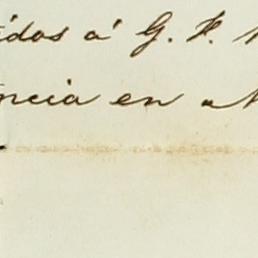 idos á G. F.
ncia en